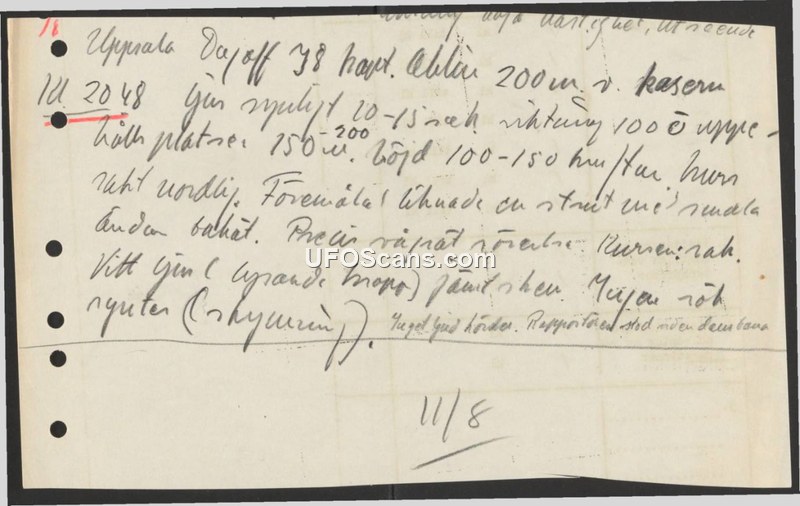 höjd, hastighet, utseende
Uppsala Dagoff I8 kapt. Ohlin 200 m. v. kasern
Kl. 2048 ljus synligt 10-15 sek. riktning 100 ö uppe-
hålls platsen 150-200 m. höjd 100-150 km/tim. kurs
rakt nordlig. Föremålet liknade en strut med smala
ändan bakåt. Precis vågrät rörelse. Kursen: rak.
Vitt ljus (lysande kropp) jämt sken. Ingen rök
syntes (skymning). Inget ljud hördes. Rapportören stod
11/8
UFOScans.com